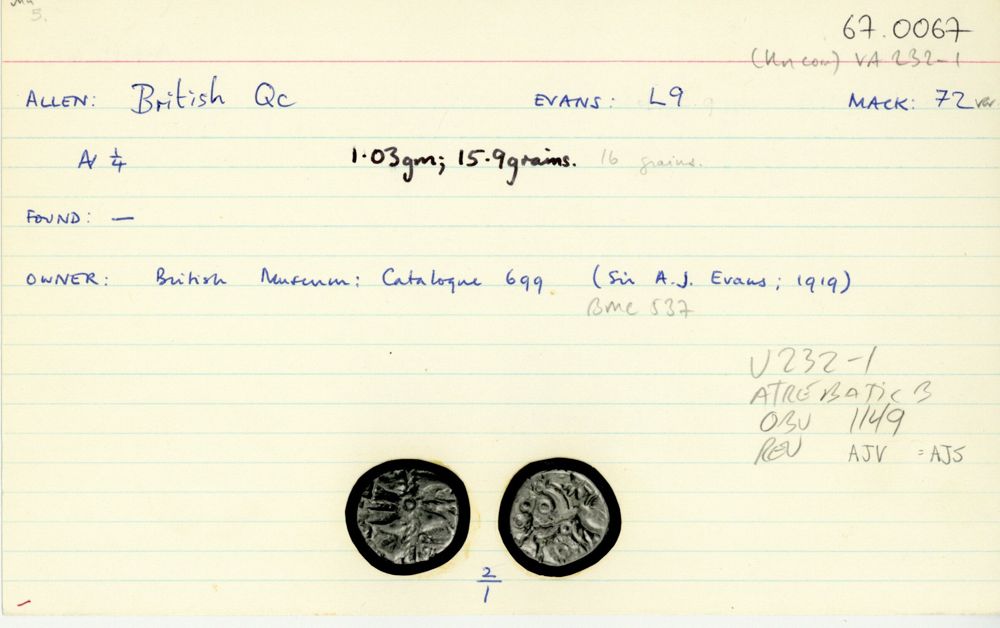 5.
67.0067
(Uncon) VA 232-1
ALLEN: British Qc EVANS: L9 MACK: 72 var
A/ ¼ 1.03gm; 15.9grains. 16 grains.
FOUND: —
OWNER: British Museum: Catalogue 699 (Sir A.J. Evans; 1919)
BMC 537
V232-1
ATREBATIC B
OBV 1149
REV AJV =AJS
2/1